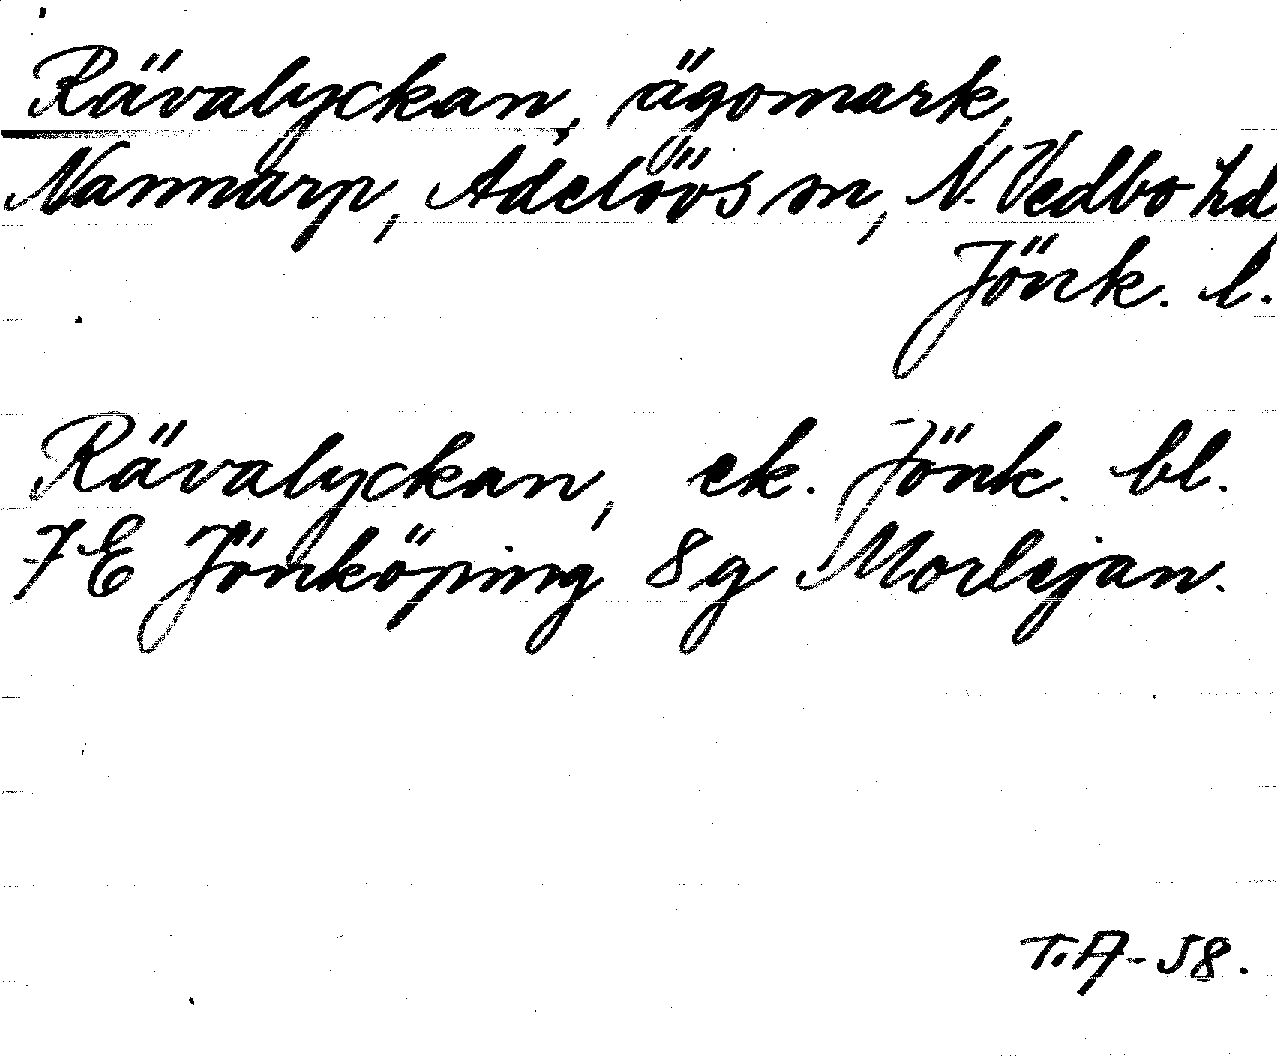 Rävalyckan, ägomark,
Nannarp, Adelövs sn, N. Vedbo hd,
Jönk. l.
Rävalyckan, ek. Jönk. bl.
7 E Jönköping 8 g Morlejan.
T.A-58.